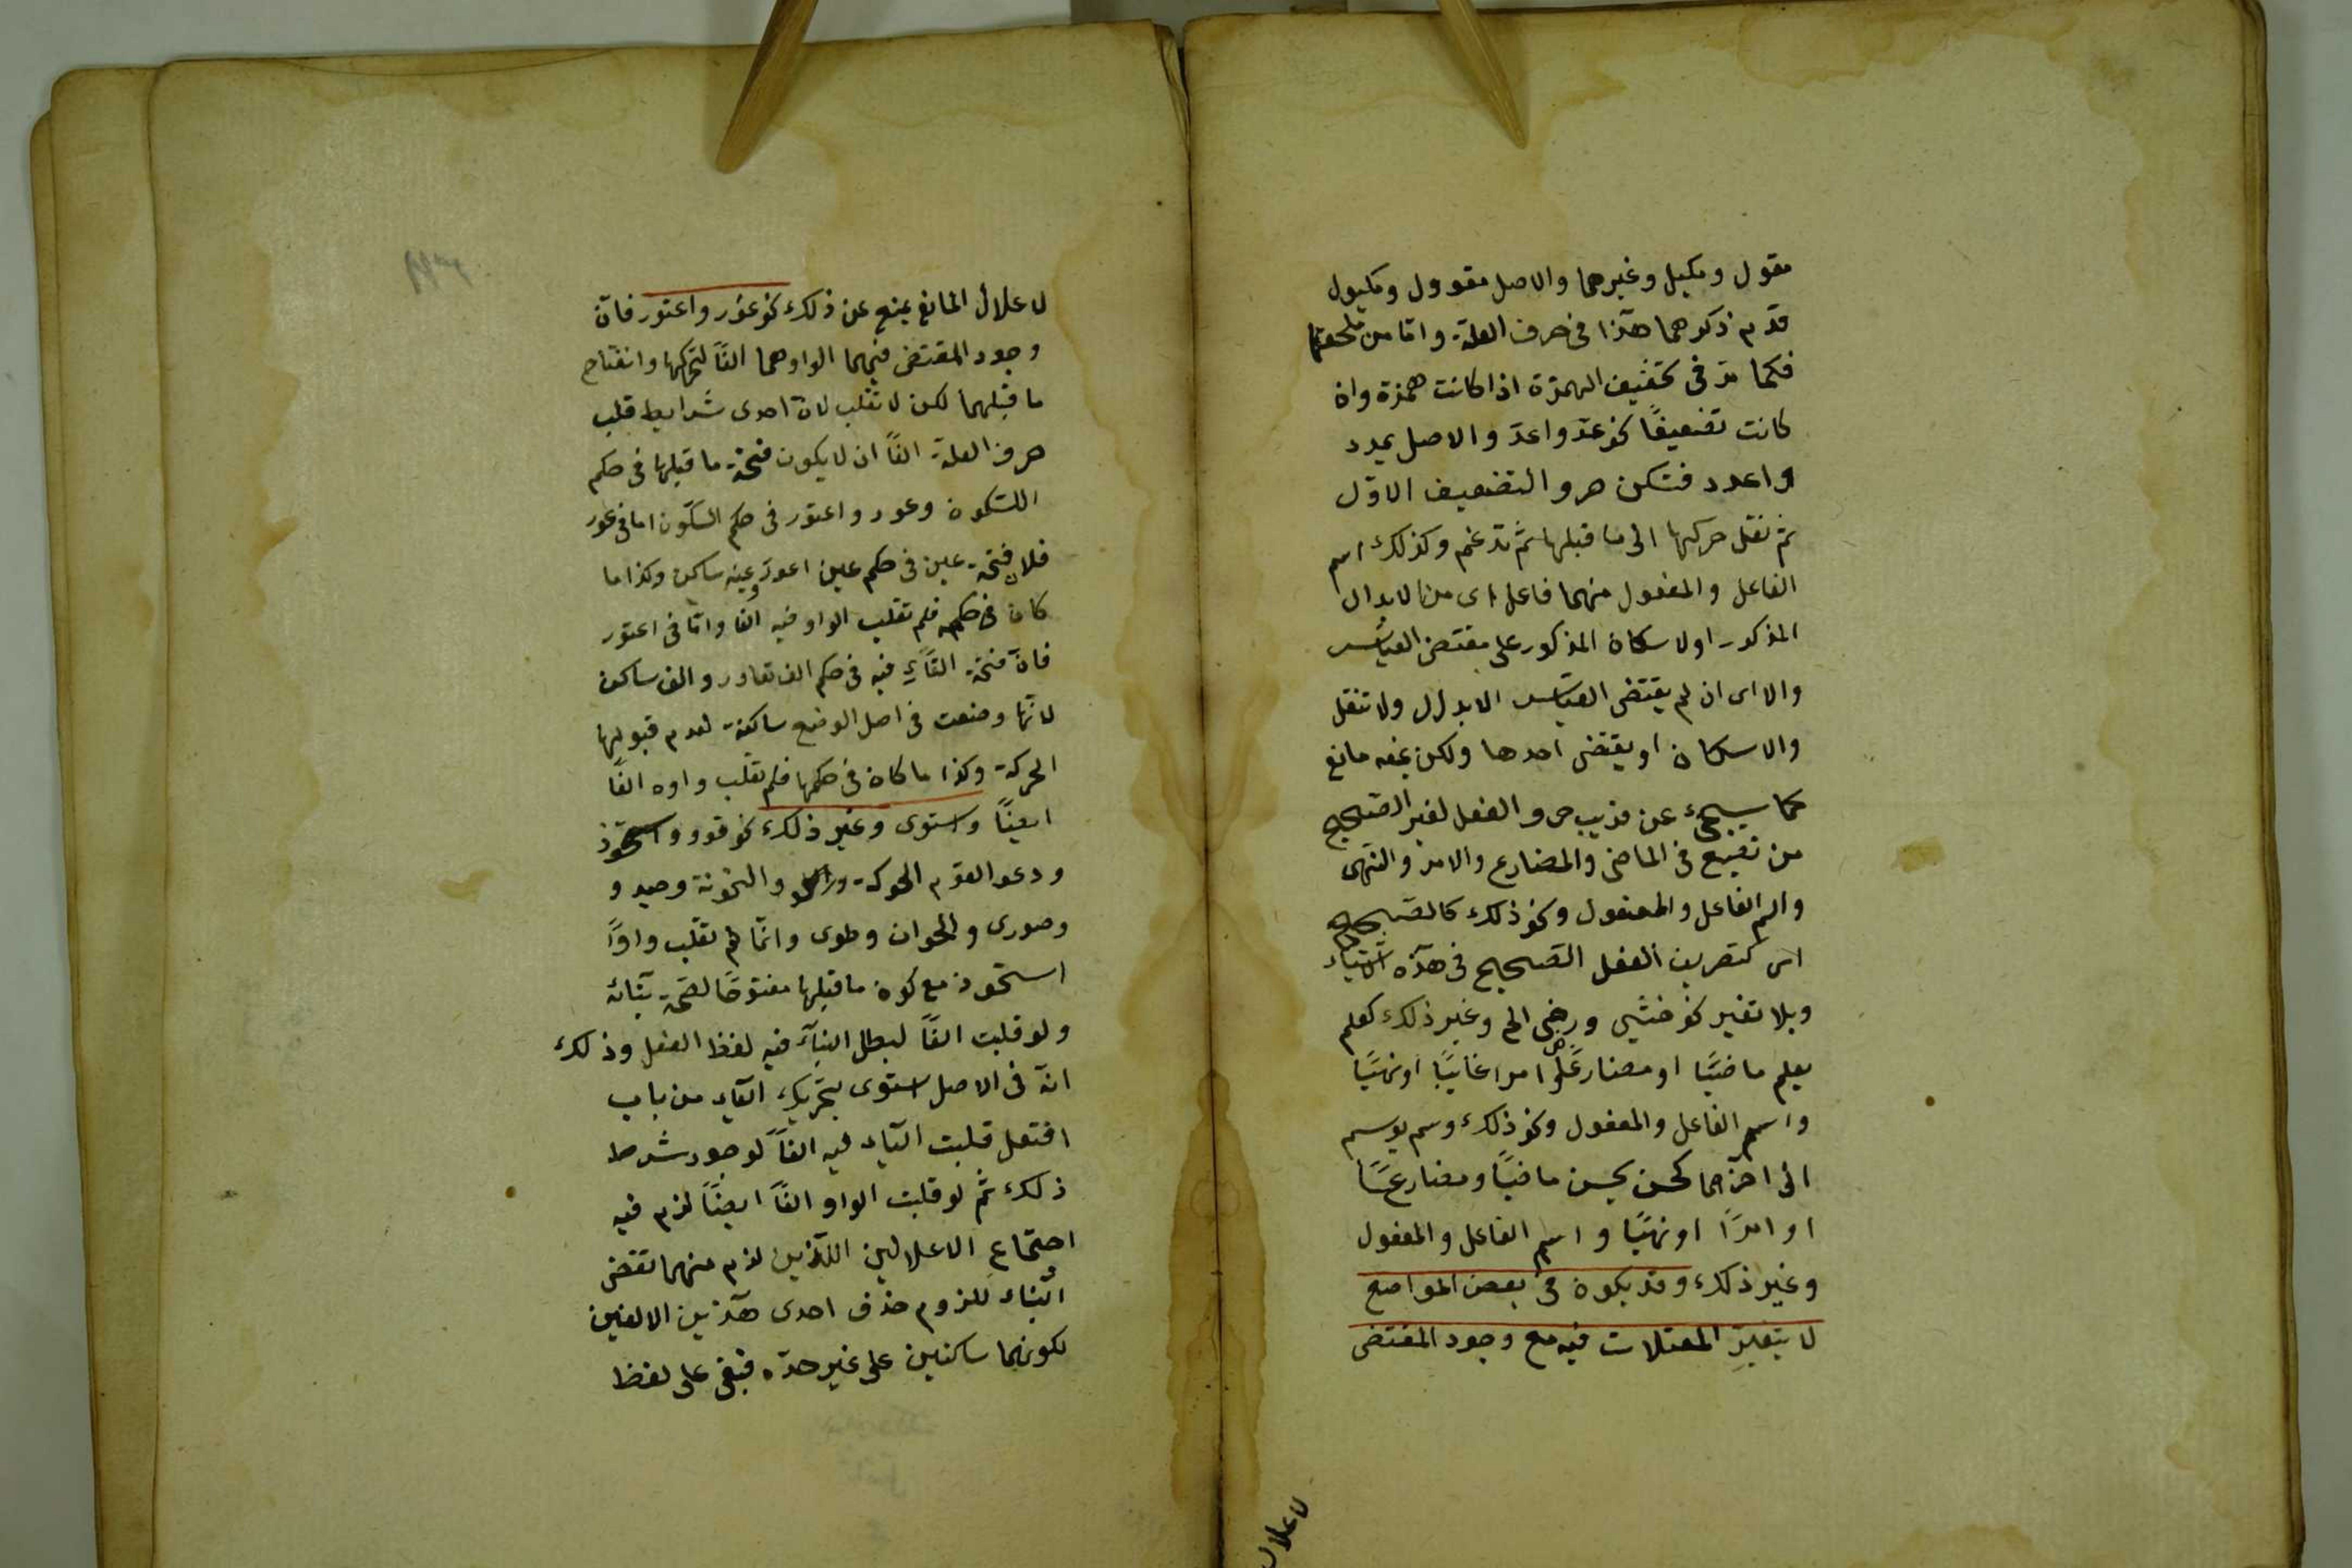 مقول ومكيل وغيرهما والاصل مقوول ومكيول
قدم ذكرهما هذا فى حرف العلة واما من ملحقها
فكما مر فى تخفيف الهمزة اذا كانت همزة وان
كانت تضعيفًا نحو عد واعد والاصل يمدد
واعدد فتسكن حرو التضعيف الاوّل
ثم نقل حركتها الى ما قبلها ثم تدغم وكذلك اسم
الفاعل والمفعول منهما فاعل اى من الابدال
المذكور اولا سكان المذكور على مقتضى القياس
والا اى ان لم يقتضى القياس الابدال ولا تنقل
والاسكان او يقتضى احدها ولكن يمنعه مانع
كما سيجىء عن قريب حر والفعل لغير الصحيح
من تقبع فى الماضى والمضارع والامر والنهى
واسم الفاعل والمفعول ونحو ذلك كالصحيح
اى كتصريف الفعل الصحيح فى هذه الاشياء
وبلا تغير نحو خشى ورضى الخ وغير ذلك كعلم
يعلم ماضيًا او مضارعًا امرا غايبًا او نهيًا
واسم الفاعل والمفعول ونحو ذلك وسم يوسم
الى اخرهما كحسن يحسن ماضيًا ومضارعًا
او امرًا او نهيًا واسم الفاعل والمفعول
وغير ذلك وقد يكون فى بعض المواضع
لا يتغير المعتلات فيه مع وجود المقتضى
لاعلال
لاعلال المانع يمنع عن ذلك نحو عور واعتور فان
وجود المقتضى فيهما الواوهما الفًا لتحركها وانفتاح
ما قبلهما لكن لا تقلب لان احدى شرايط قلب
حرف العلة الفًا ان لا يكون فتحة ما قبلها فى حكم
السكون وعور واعتور فى حكم السكون اما فى عور
فلان فتحة عين فى حكم عين اعور وعينه ساكن وكذا ما
كان فى حكمه فلم تقلب الواو فيه الفا واما فى اعتور
فان فتحة التاء فيه فى حكم الف تعاور والف ساكن
لانها وضعت فى اصل الوضع ساكنة لعدم قبولها
الحركة وكذا ما كان فى حكمها فلم تقلب واوه الفًا
ايضًا واستوى وغير ذلك نحو قوود واستحوذ
ودعو القوم الحوكة والخونة وصيد و
وصورى والحوان وطوى وانما لم تقلب واوًا
استحوذ مع كون ما قبلها مفتوحًا لصحة بنائه
ولو قلبت الفًا لبطل البناء فيه لفظ الفعل وذلك
انه فى الاصل استوى بتحريك الياء من باب
افتعل قلبت الياء فيه الفًا لوجود شرط
ذلك ثم لو قلبت الواو الفًا ايضًا لزم فيه
اجتماع الاعلالين اللذين لزم منهما نقض
البناء للزوم حذف احدى هذين الالفين
لكونهما ساكنين على غير حده فبقى على لفظ